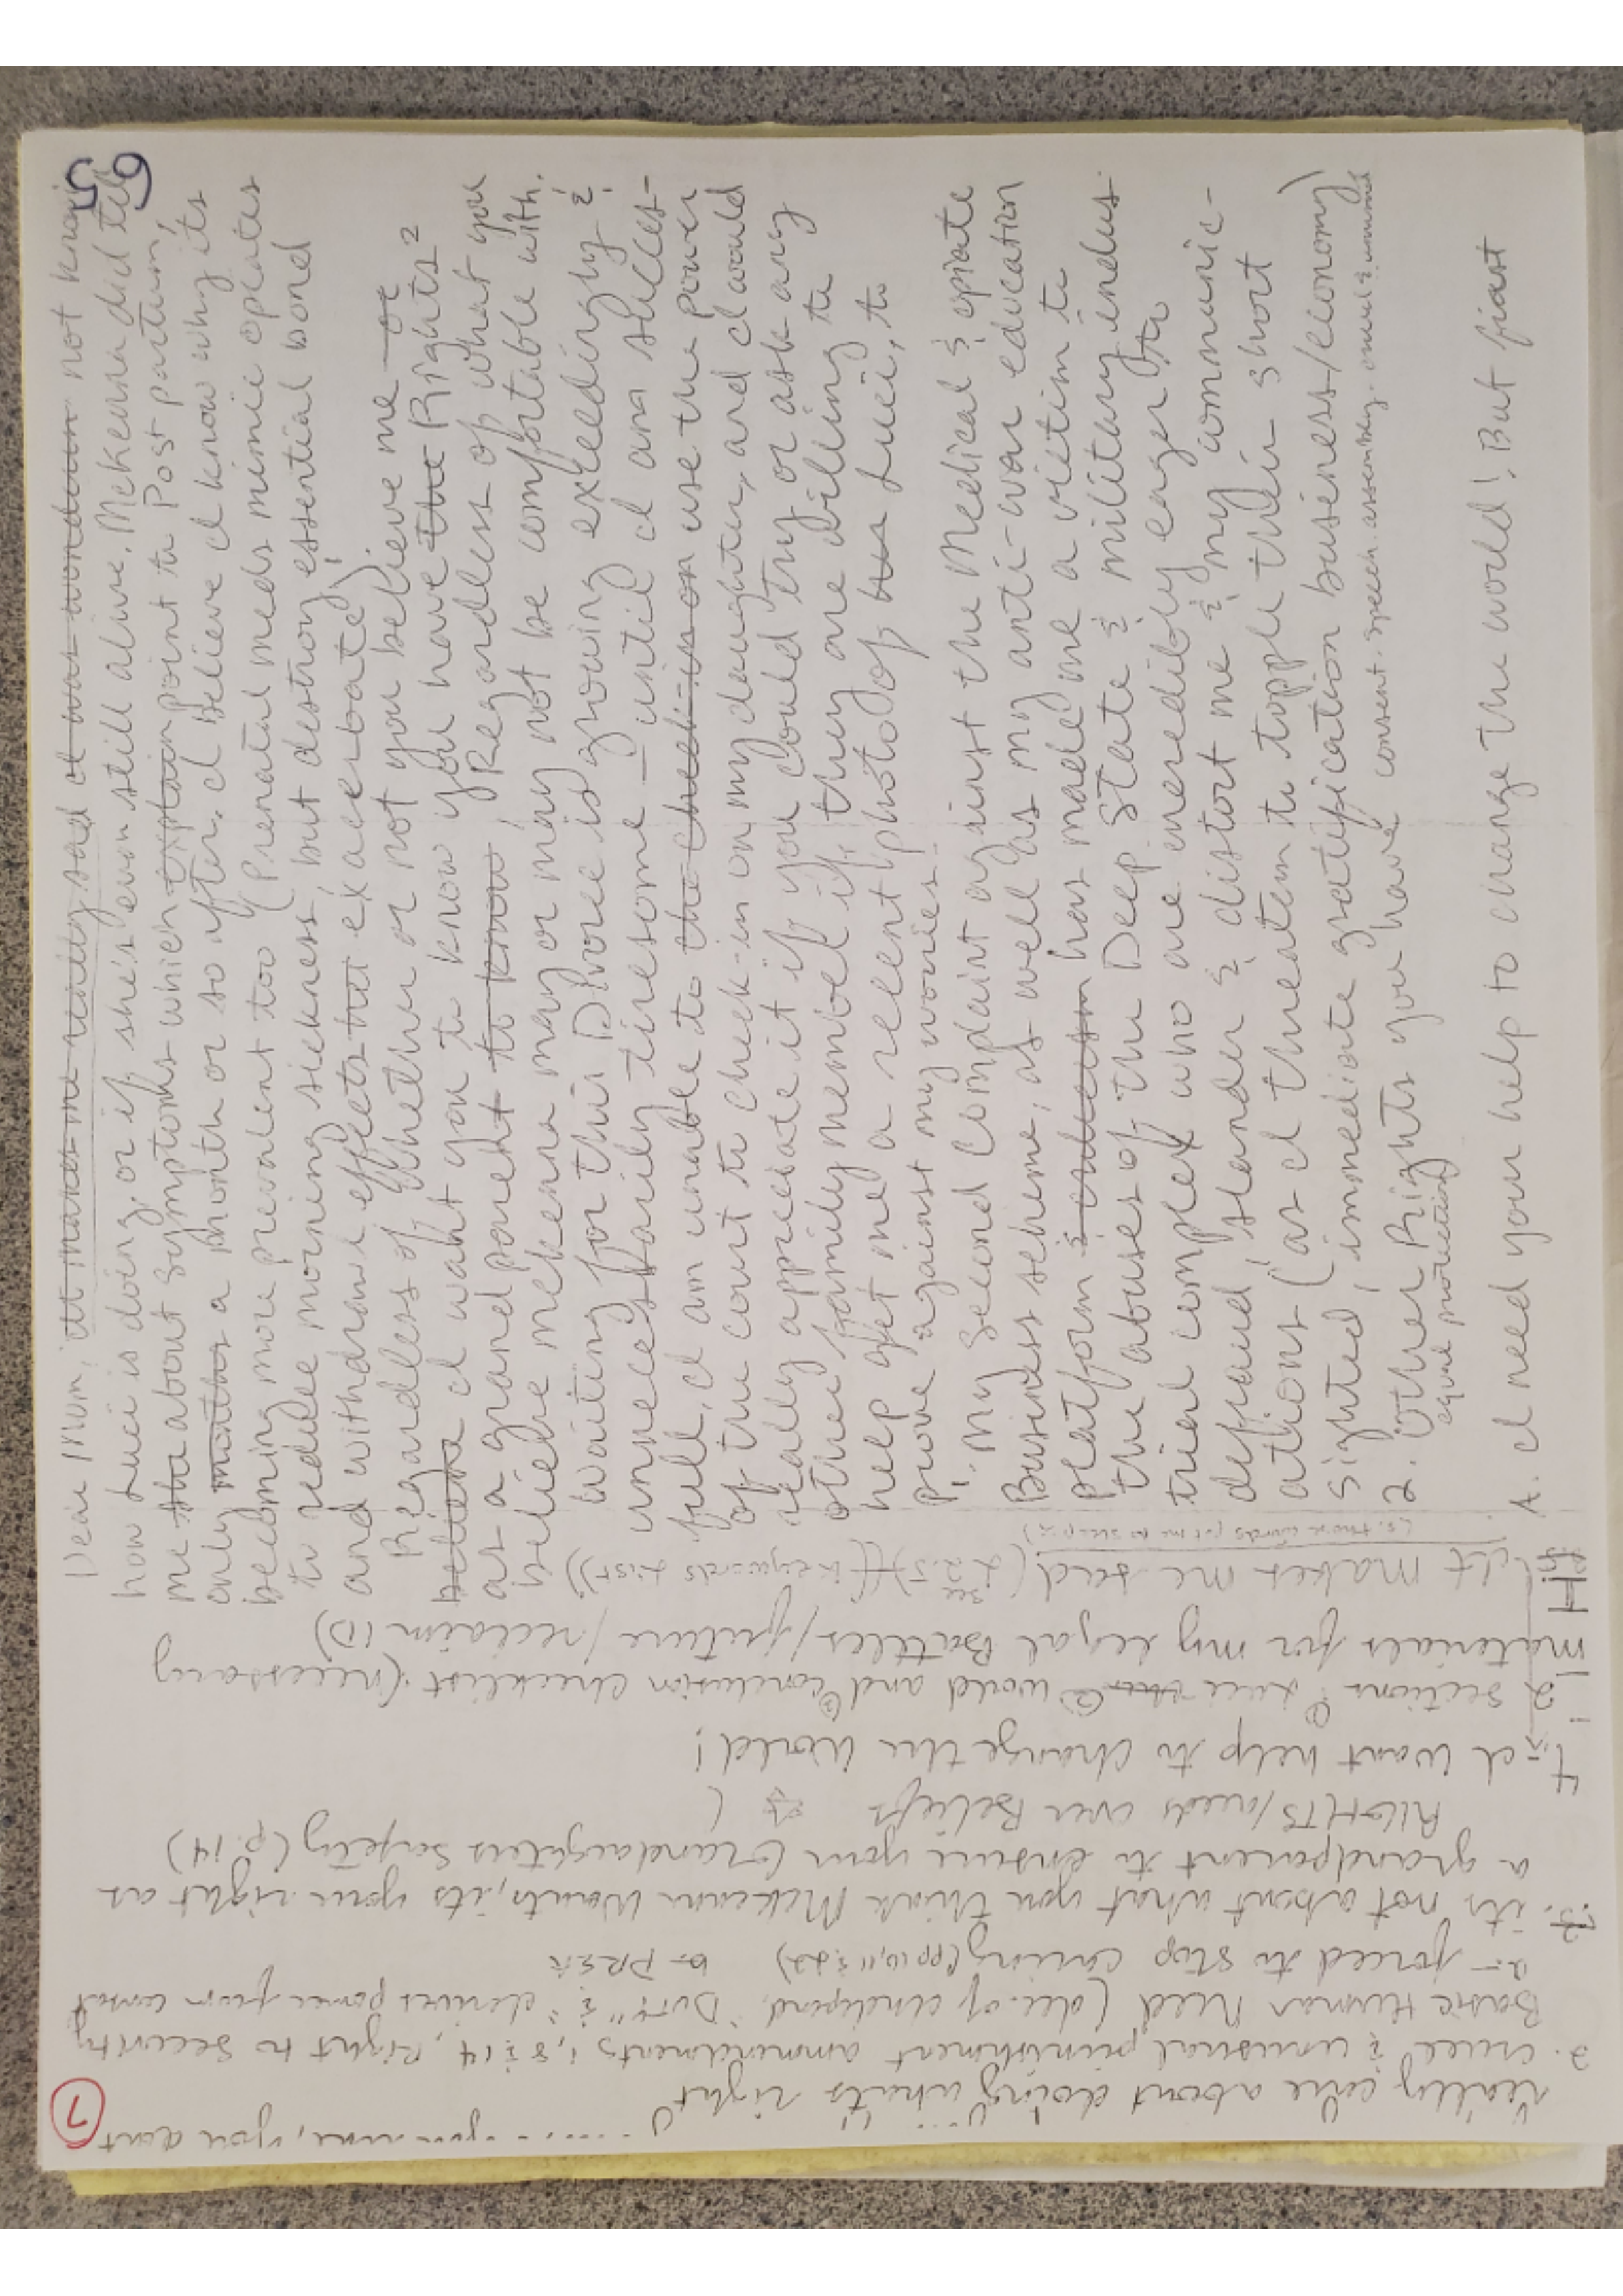 59
Dear Mum, it makes me really sad I was wondering not knowing
how Luci is doing, or if she's even still alive. Mckenna did tell
me about symptoms which explain point to Post partum,
only months a month or so after. I believe I know why its
becoming more prevalent too (Prenatal meds mimic opiates
to reduce morning sickness, but destroy essential bond
and withdrawl effects that exacerbate)
Regardless of whether or not you believe me - or
believe I want you to know you have the Rights 2
as a grandparent to know, Regardless of what you
believe mckenna may or may not be comfortable with.
Waiting for this Divorce is growing exceedingly &
unnecessarily tiresome - until I am success-
full, I am unable to the check-in on use the power
of the court to check-in on my daughter, and I would
really appreciate it if you could try or ask any
other family member if they are willing to
help get me a recent photo of her Luci, to
prove against my worries.
1. My second complaint against the Medical & opiate
Business scheme, as well as my anti-war education
platform & has made me a victim to
the abuses of the Deep State & military indus-
trial complex who are incredibly eager to
defraud, slander & distort me & my communic-
ations (as I threaten to topple their short
sighted, immediate gratification business/economy)
2. Other Rights you have consent. speech. assembly. cruel & unusual
equal protection
A. I need your help to change the world! But first
7
you care, you dont
really care about doing whats right
2. cruel & unusual punishment ammendments 1, 8 & 14, Right to security
Basic Human Need (dec. of independ. "Duty" & "derives power from consent
a- forced to stop caring (pp 10, 11 & 22) b-
3. its not about what you think Mckenna Wants, its your right as
a grandparent to ensure your Grandaughters safety (p. 14)
RIGHTS/needs over Beliefs
4. I want help to change the world!
2 sections Luci world and conclusion checklist (necessary
materials for my legal Battles/future/reclaim ID)
Hi!
It makes me sad (keywords first)
(s. these words put me to sleep)